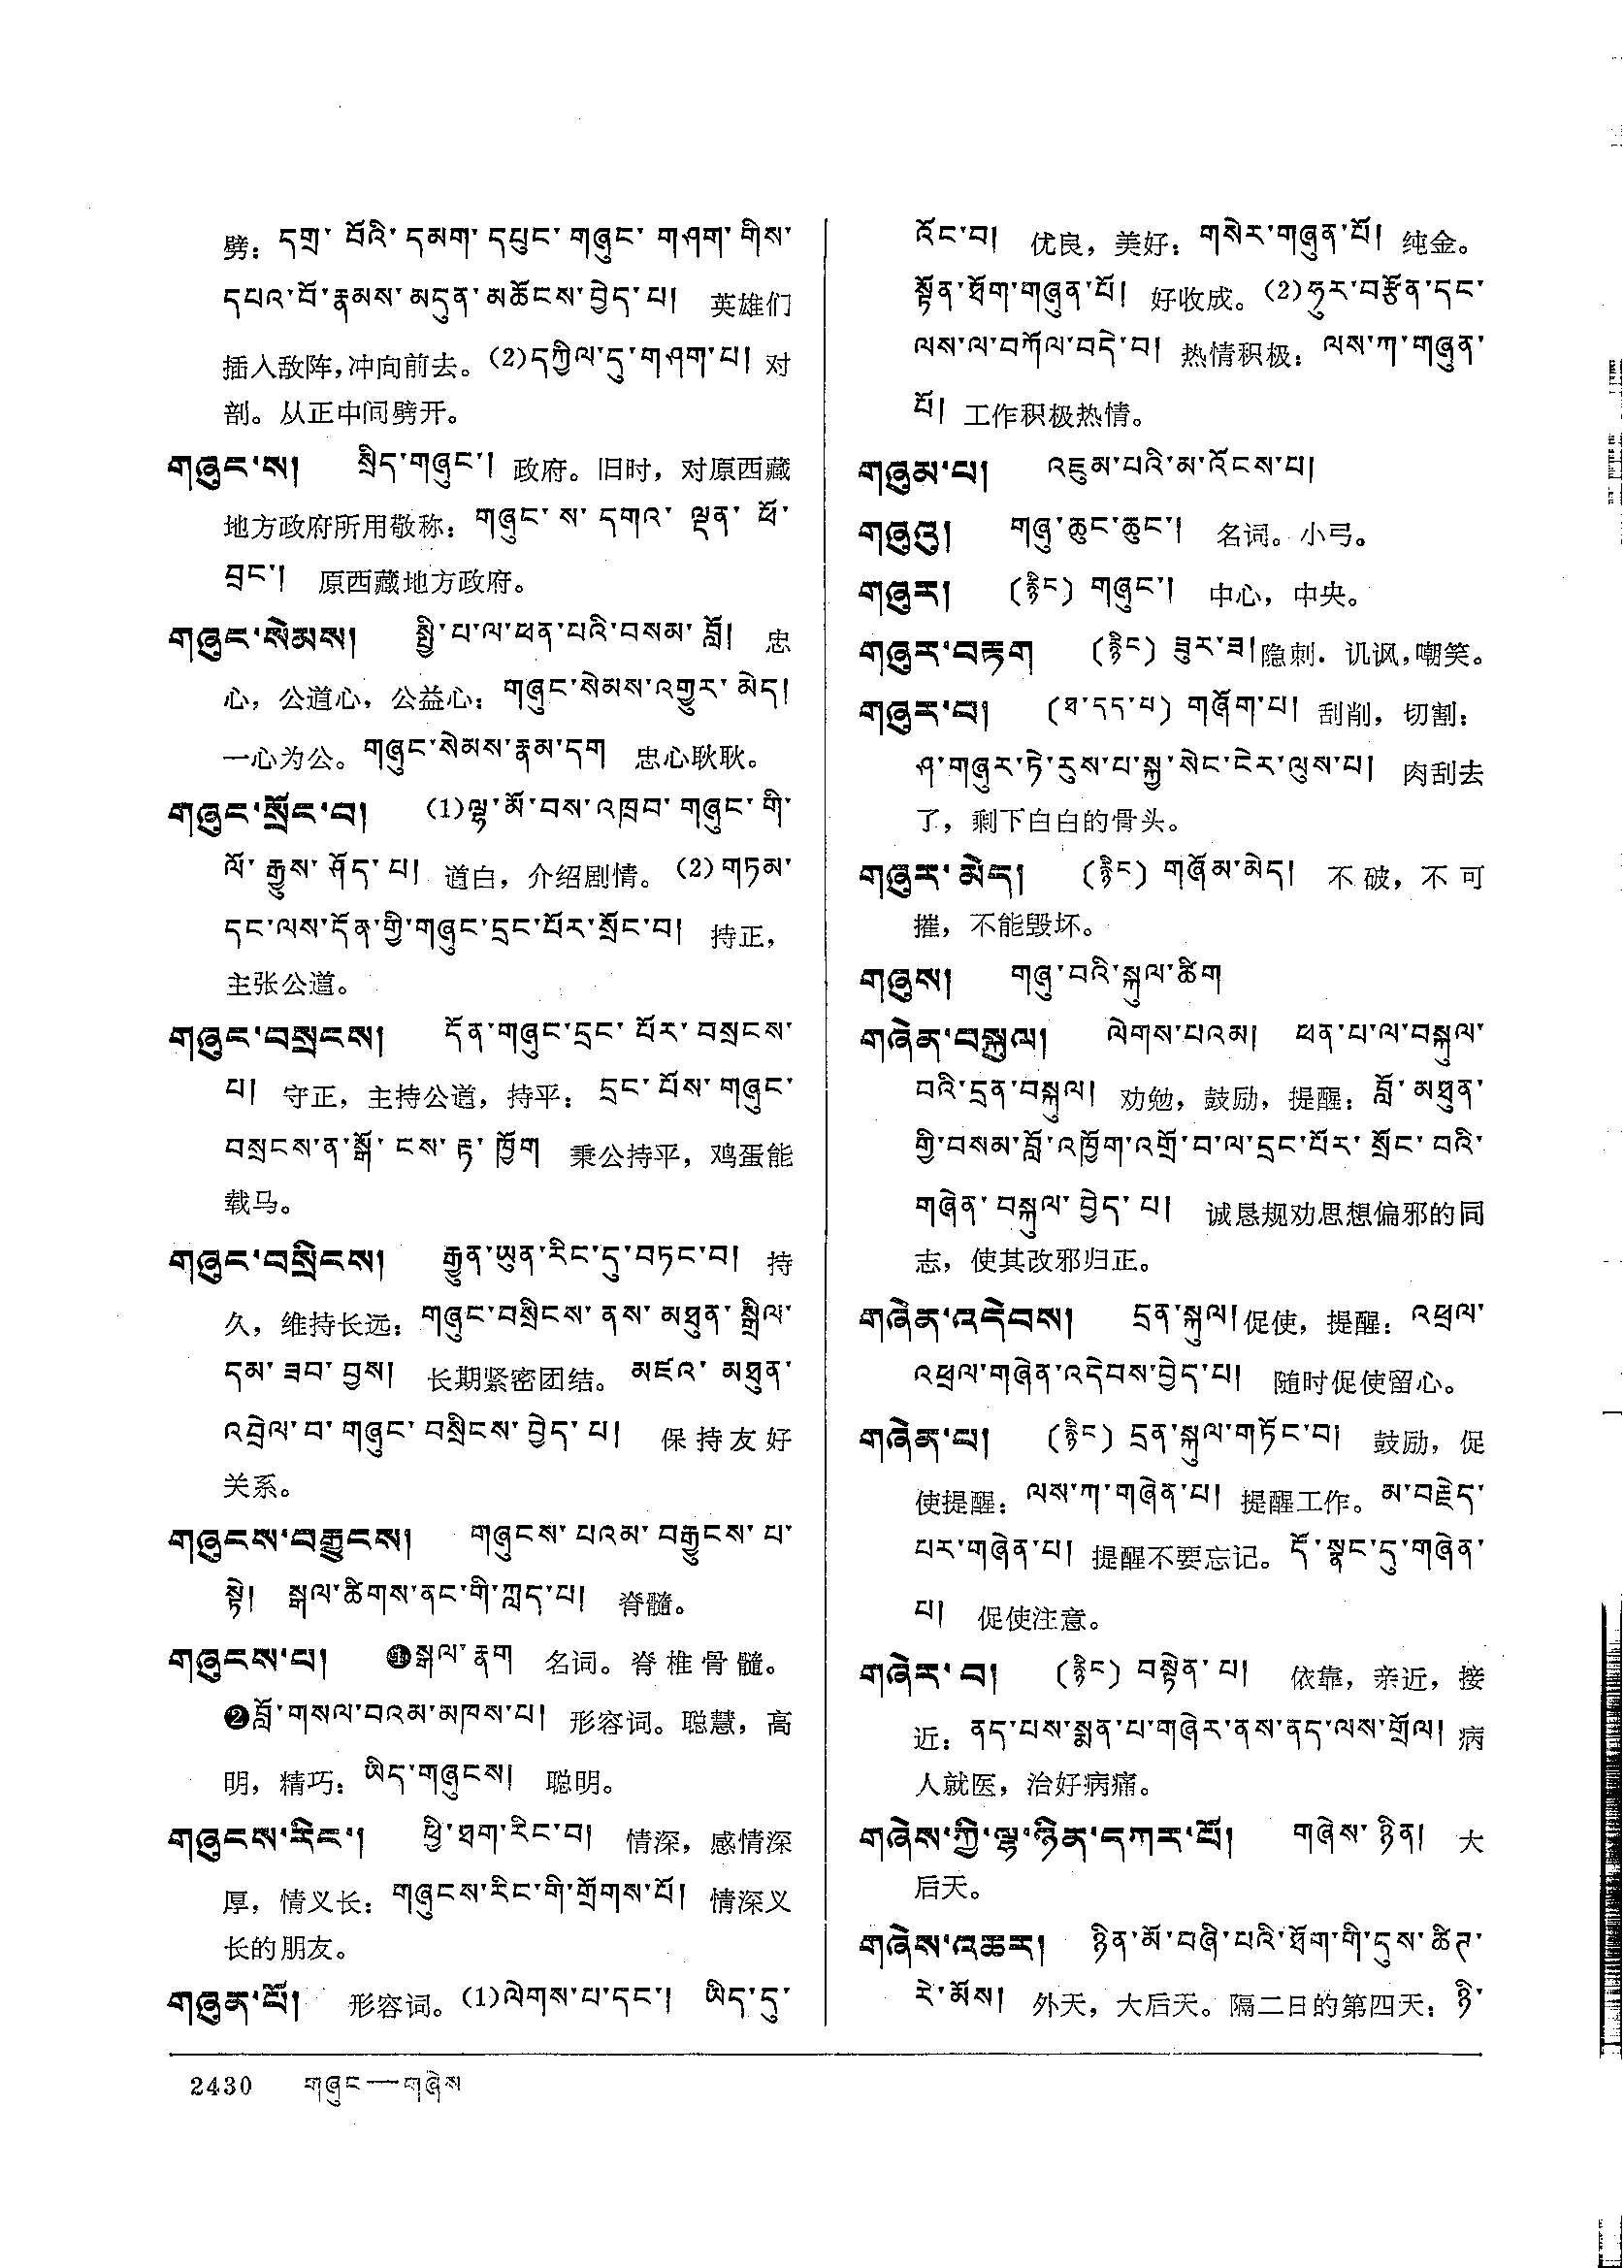 劈；དགྲ་བོའི་དམག་དཔུང་གཞུང་གཤག་གིས་
དཔའ་བོ་རྣམས་མདུན་མཆོངས་བྱེད་པ། 英雄们
插入敌阵，冲向前去。(2)དཀྱིལ་དུ་གཤག་པ། 对
剖。从正中间劈开。
གཞུང་ས། སྲིད་གཞུང་། 政府。旧时，对原西藏
地方政府所用敬称：གཞུང་ས་དགའ་ལྡན་ཕོ་
བྲང་། 原西藏地方政府。
གཞུང་སེམས། སྤྱི་པ་ལ་ཕན་པའི་བསམ་བློ། 忠
心，公道心，公益心：གཞུང་སེམས་འགྱུར་མེད།
一心为公。གཞུང་སེམས་རྣམ་དག 忠心耿耿。
གཞུང་སྲོང་བ། (1)ལྷ་མོ་བས་འཁྲབ་གཞུང་གི་
ལོ་རྒྱུས་ཤོད་པ། 道白，介绍剧情。(2)གཏམ་
དང་ལས་དོན་གྱི་གཞུང་དྲང་པོར་སྲོང་བ། 持正，
主张公道。
གཞུང་བསྲངས། དོན་གཞུང་དྲང་པོར་བསྲངས་
པ། 守正，主持公道，持平：དྲང་པོས་གཞུང་
བསྲངས་ན་སྒོ་ངས་རྟ་ཁྱོག 秉公持平，鸡蛋能
载马。
གཞུང་བསྲིངས། རྒྱུན་ཡུན་རིང་དུ་བཏང་བ། 持
久，维持长远：གཞུང་བསྲིངས་ནས་མཐུན་སྒྲིལ་
དམ་ཟབ་བྱས། 长期紧密团结。མཛའ་མཐུན་
འབྲེལ་བ་གཞུང་བསྲིངས་བྱེད་པ། 保持友好
关系。
གཞུངས་བརྒྱུངས། གཞུངས་པའམ་བརྒྱུངས་པ་
སྟེ། སྒལ་ཚིགས་ནང་གི་ཀླད་པ། 脊髓。
གཞུངས་པ། ❶སྒལ་རྣག 名词。脊椎骨髓。
❷བློ་གསལ་བའམ་མཁས་པ། 形容词。聪慧，高
明，精巧：ཡིད་གཞུངས། 聪明。
གཞུངས་རིང་། ཕྱི་ཐག་རིང་བ། 情深，感情深
厚，情义长：གཞུངས་རིང་གི་གྲོགས་པོ། 情深义
长的朋友。
གཞུན་པོ། 形容词。(1)ལེགས་པ་དང་། ཡིད་དུ་
འོང་བ། 优良，美好：གསེར་གཞུན་པོ། 纯金。
སྟོན་ཐོག་གཞུན་པོ། 好收成。(2)ཧུར་བརྩོན་དང་
ལས་ལ་བཀོལ་བདེ་བ། 热情积极：ལས་ཀ་གཞུན་
པོ། 工作积极热情。
གཞུམ་པ། འཇུམ་པའི་མ་འོངས་པ།
གཞུའུ། གཞུ་ཆུང་ཆུང་། 名词。小弓。
གཞུར། (རྙིང) གཞུང་། 中心，中央。
གཞུར་བརྟག (རྙིང) ཟུར་ཟ། 隐刺．讥讽，嘲笑。
གཞུར་བ། (ཐ་དད་པ) གཞོག་པ། 刮削，切割：
ཤ་གཞུར་ཏེ་རུས་པ་སྐྱ་སེང་ངེར་ལུས་པ། 肉刮去
了，剩下白白的骨头。
གཞུར་མེད། (རྙིང) གཞོམ་མེད། 不破，不可
摧，不能毁坏。
གཞུས། གཞུ་བའི་སྐུལ་ཚིག
གཞེན་བསྐུལ། ལེགས་པའམ། ཕན་པ་ལ་བསྐུལ་
བའི་དྲན་བསྐུལ། 劝勉，鼓励，提醒：བློ་མཐུན་
གྱི་བསམ་བློ་འཁྱོག་འགྲོ་བ་ལ་དྲང་པོར་སྲོང་བའི་
གཞེན་བསྐུལ་བྱེད་པ། 诚恳规劝思想偏邪的同
志，使其改邪归正。
གཞེན་འདེབས། དྲན་སྐུལ། 促使，提醒：འཕྲལ་
འཕྲལ་གཞེན་འདེབས་བྱེད་པ། 随时促使留心。
གཞེན་པ། (རྙིང) དྲན་སྐུལ་གཏོང་བ། 鼓励，促
使提醒：ལས་ཀ་གཞེན་པ། 提醒工作。མ་བརྗེད་
པར་གཞེན་པ། 提醒不要忘记。དོ་སྣང་དུ་གཞེན་
པ། 促使注意。
གཞེར་བ། (རྙིང) བསྟེན་པ། 依靠，亲近，接
近：ནད་པས་སྨན་པ་གཞེར་ནས་ནད་ལས་གྲོལ། 病
人就医，治好病痛。
གཞེས་ཀྱི་ལྷ་ཉིན་དཀར་པོ། གཞེས་ཉིན། 大
后天。
གཞེས་འཆར། ཉིན་མོ་བཞི་པའི་ཐོག་གི་དུས་ཚིཊ་
རེ་མོས། 外天，大后天。隔二日的第四天：ཉི་
2430 གཞུང—གཞེས